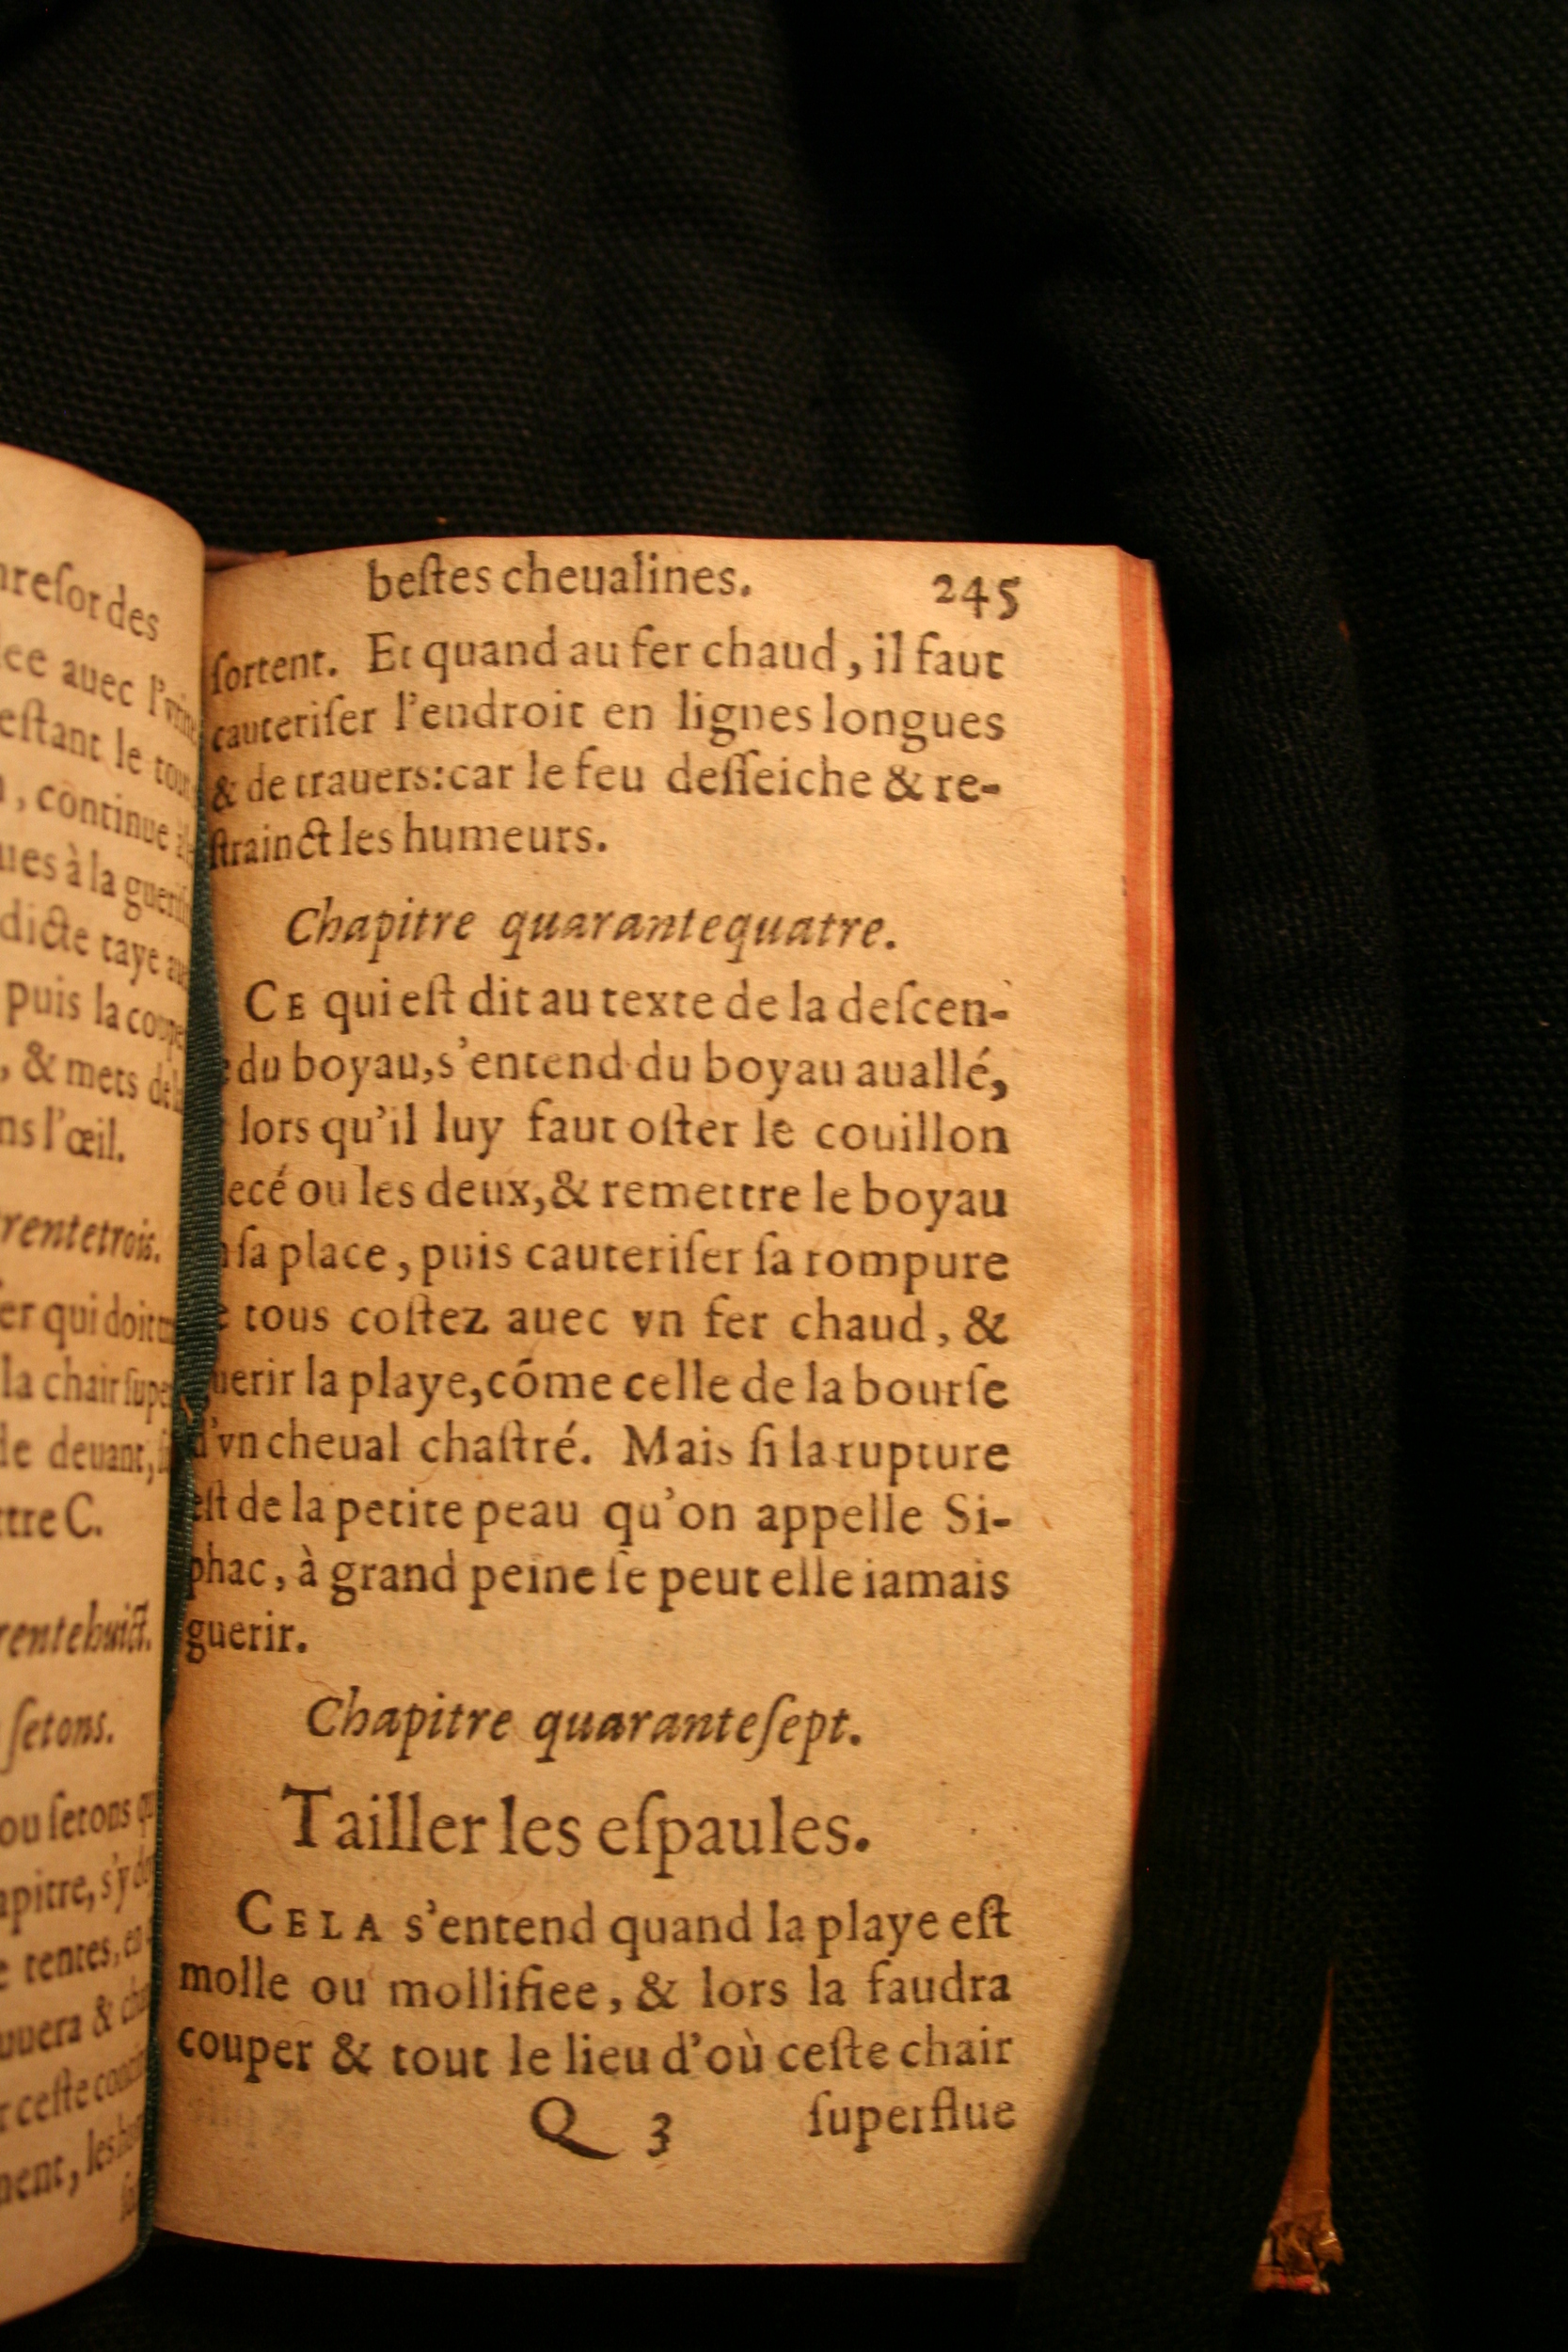 hresor des
ee auec l'vrine
estant le tout
, continue
ues à la gueri
dicte taye au
puis la coupe
, & mets de la
ns l'œil.
rentetrois.
er qui doit
la chair supe
de deuant, si
ttre C.
rentehuict.
setons.
ou setons qu
apitre, s'y do
e tentes, en
uuera & cha
r ceste con
ment, les hu
bestes cheualines. 245
sortent. Et quand au fer chaud, il faut
cauteriser l'endroit en lignes longues
& de trauers: car le feu desseiche & re-
strainct les humeurs.
Chapitre quarantequatre.
CE qui est dit au texte de la descen-
e du boyau, s'entend du boyau auallé,
lors qu'il luy faut oster le couillon
lecé ou les deux, & remettre le boyau
n sa place, puis cauteriser sa rompure
e tous costez auec vn fer chaud, &
guerir la playe, cōme celle de la bourse
d'vn cheual chastré. Mais si la rupture
est de la petite peau qu'on appelle Si-
phac, à grand peine se peut elle iamais
guerir.
Chapitre quarantesept.
Tailler les espaules.
CELA s'entend quand la playe est
molle ou mollifiee, & lors la faudra
couper & tout le lieu d'où ceste chair
Q 3 superflue